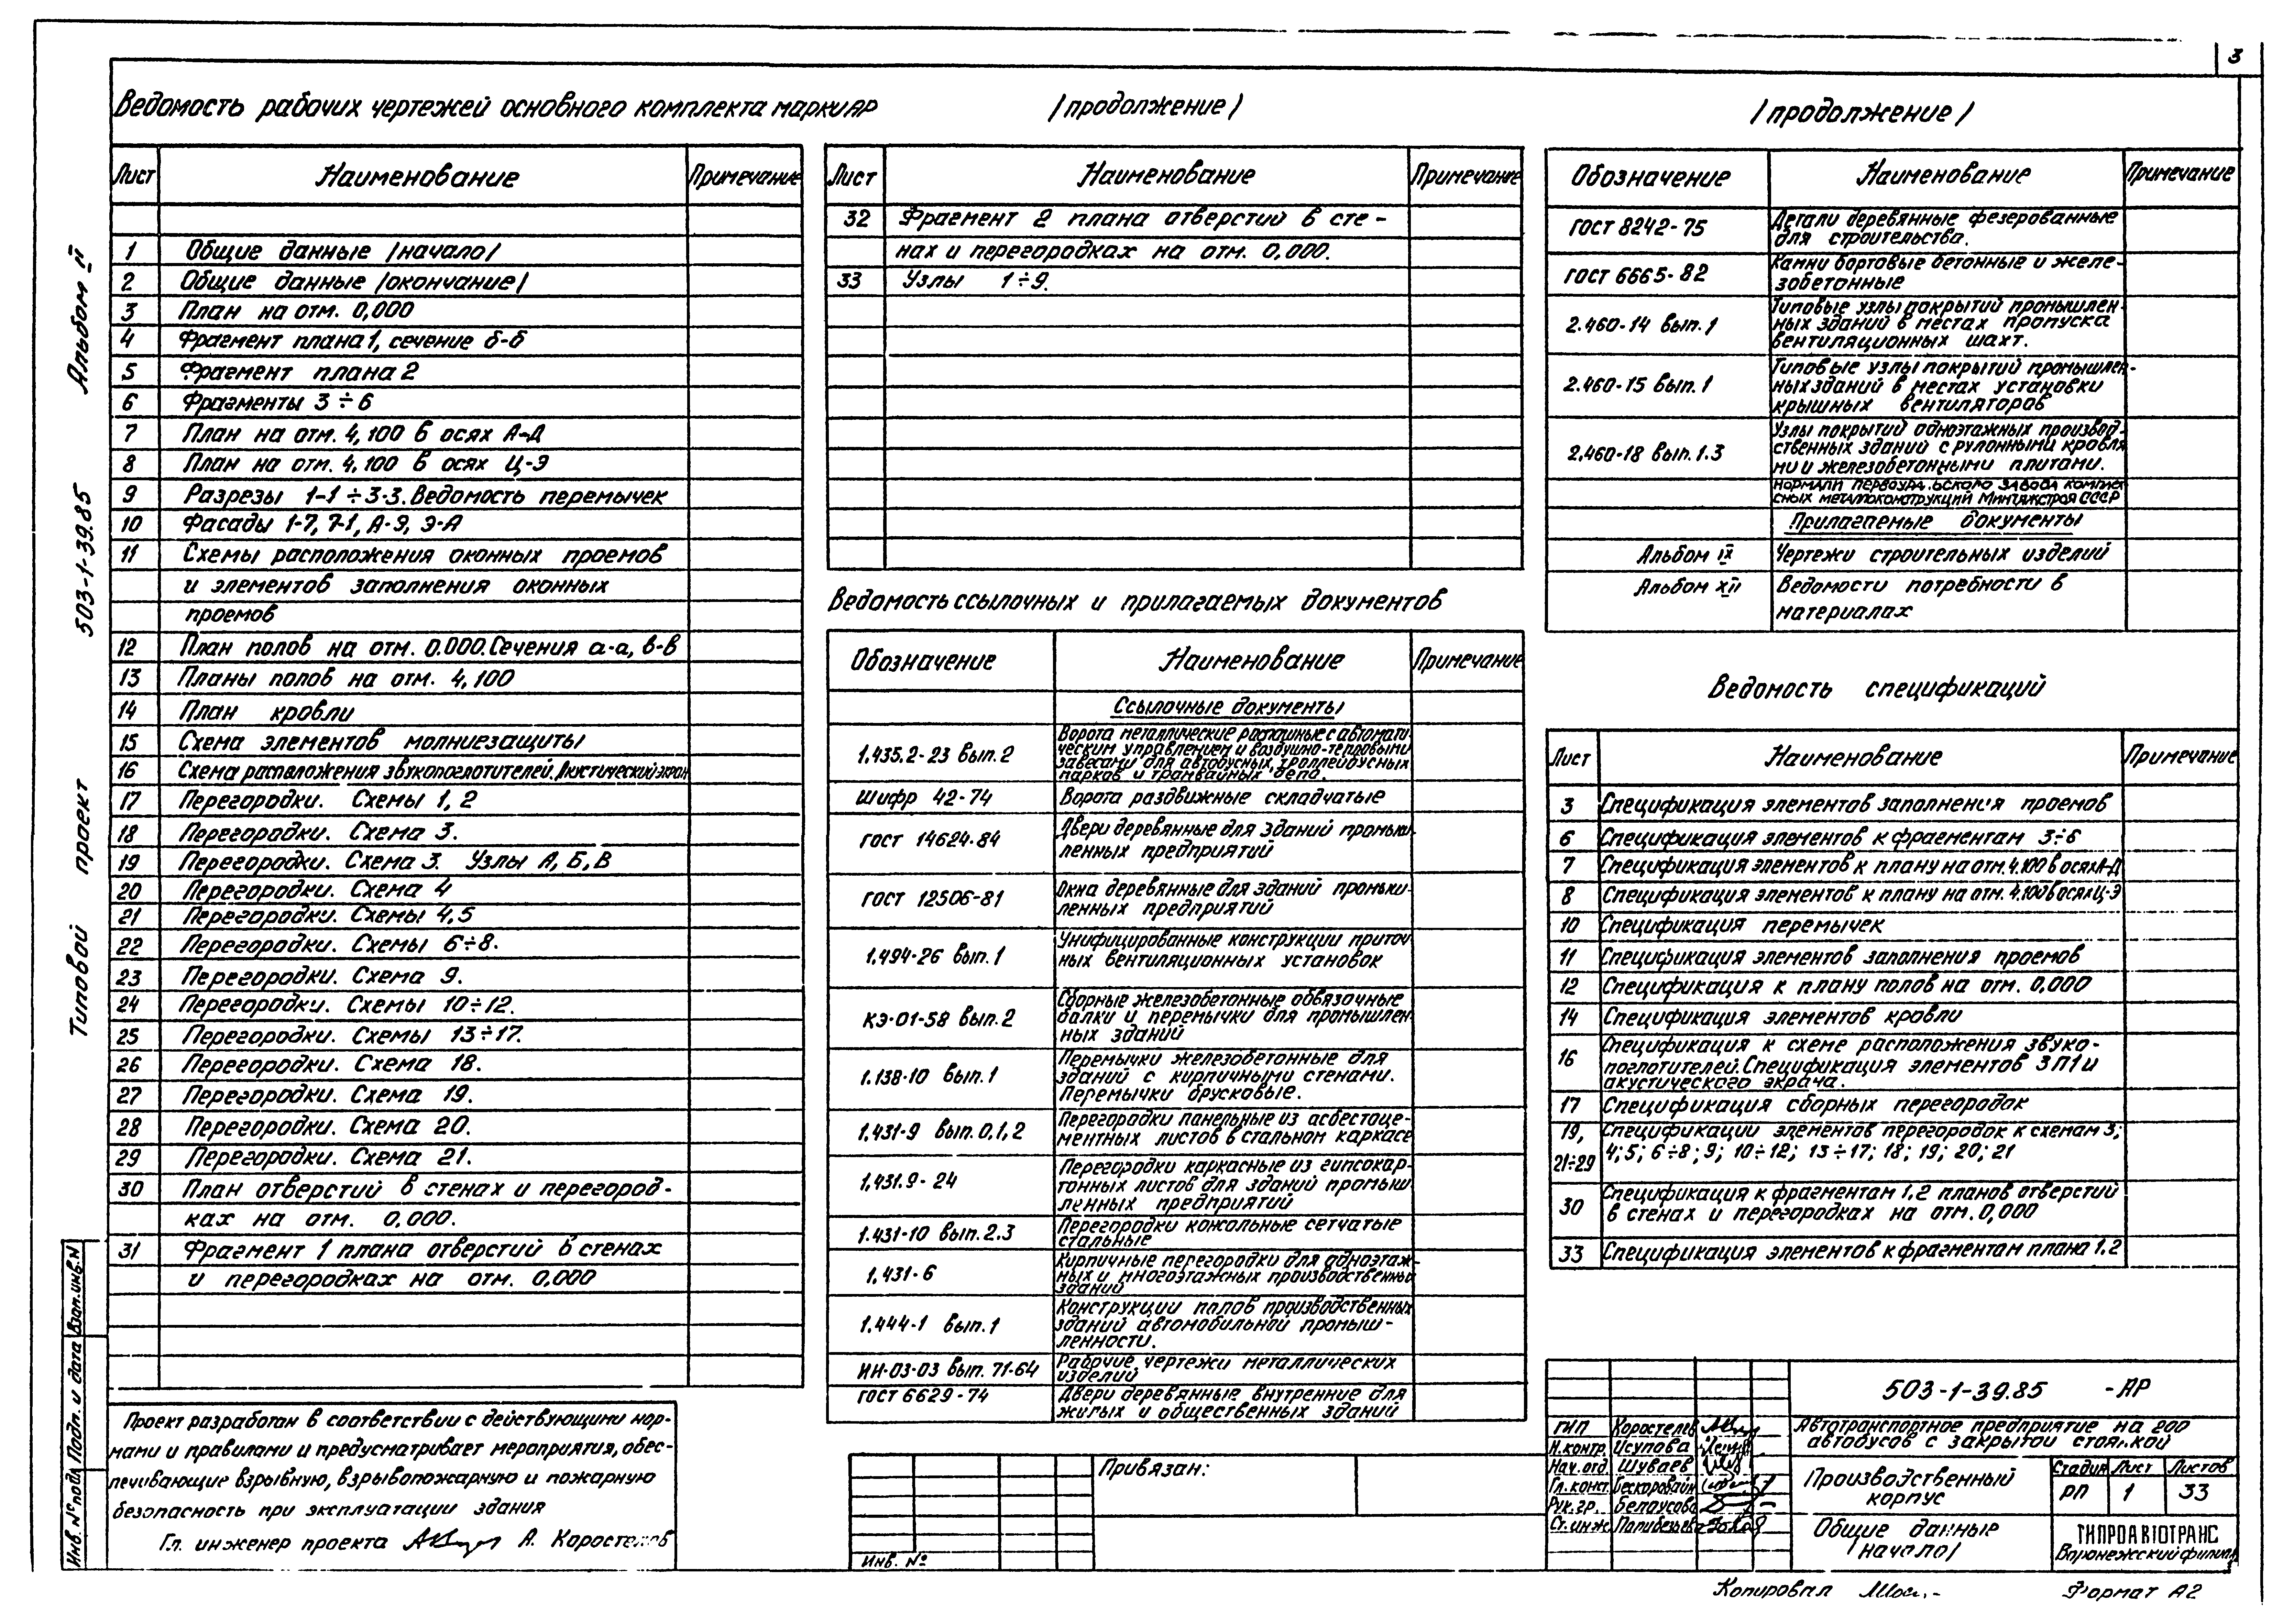 3
Ведомость рабочих чертежей основного комплекта марки АР
Лист Наименование Примечание
1 Общие данные /начало/
2 Общие данные /окончание/
3 План на отм. 0,000
4 Фрагмент плана 1, сечение б-б
5 Фрагмент плана 2
6 Фрагменты 3÷6
7 План на отм. 4,100 в осях А-Д
8 План на отм. 4,100 в осях Ц-Э
9 Разрезы 1-1÷3-3. Ведомость перемычек
10 Фасады 1-7, 7-1, А-Э, Э-А
11 Схемы расположения оконных проемов
и элементов заполнения оконных
проемов
12 План полов на отм. 0.000. Сечения а-а, в-в
13 Планы полов на отм. 4,100
14 План кровли
15 Схема элементов молниезащиты
16 Схема расположения звукопоглотителей. Акустический экран
17 Перегородки. Схемы 1, 2
18 Перегородки. Схема 3.
19 Перегородки. Схема 3. Узлы А, Б, В
20 Перегородки. Схема 4
21 Перегородки. Схемы 4,5
22 Перегородки. Схемы 6÷8.
23 Перегородки. Схема 9.
24 Перегородки. Схемы 10÷12.
25 Перегородки. Схемы 13÷17.
26 Перегородки. Схема 18.
27 Перегородки. Схема 19.
28 Перегородки. Схема 20.
29 Перегородки. Схема 21.
30 План отверстий в стенах и перегород-
ках на отм. 0,000.
31 Фрагмент 1 плана отверстий в стенах
и перегородках на отм. 0,000
Проект разработан в соответствии с действующими нор-
мами и правилами и предусматривает мероприятия, обес-
печивающие взрывную, взрывопожарную и пожарную
безопасность при эксплуатации здания
Гл. инженер проекта А. Коростелев
/продолжение/
Лист Наименование Примечание
32 Фрагмент 2 плана отверстий в сте-
нах и перегородках на отм. 0,000.
33 Узлы 1÷9.
Ведомость ссылочных и прилагаемых документов
Обозначение Наименование Примечание
Ссылочные документы
1.435.2-23 вып. 2 Ворота металлические распашные с автомати-
ческим управлением и воздушно-тепловыми
завесами для автобусных, троллейбусных
парков и трамвайных депо.
Шифр 42-74 Ворота раздвижные складчатые
ГОСТ 14624-84 Двери деревянные для зданий промыш-
ленных предприятий
ГОСТ 12506-81 Окна деревянные для зданий промыш-
ленных предприятий
1.494-26 вып. 1 Унифицированные конструкции приточ
ных вентиляционных установок
КЭ-01-58 вып. 2 Сборные железобетонные обвязочные
балки и перемычки для промышлен
ных зданий
1.138-10 вып. 1 Перемычки железобетонные для
зданий с кирпичными стенами.
Перемычки брусковые.
1.431-9 вып. 0,1,2 Перегородки панельные из асбестоце-
ментных листов в стальном каркасе
1.431.9-24 Перегородки каркасные из гипсокар-
тонных листов для зданий промыш
ленных предприятий
1.431-10 вып. 2.3 Перегородки консольные сетчатые
стальные
1.431-6 Кирпичные перегородки для одноэтаж-
ных и многоэтажных производственных
зданий
1.444-1 вып. 1 Конструкции полов производственных
зданий автомобильной промыш-
ленности.
ИИ-03-03 вып. 71-64 Рабочие чертежи металлических
изделий
ГОСТ 6629-74 Двери деревянные внутренние для
жилых и общественных зданий
Привязан:
Инв. №
/продолжение/
Обозначение Наименование Примечание
ГОСТ 8242-75 Детали деревянные фезерованные
для строительства.
ГОСТ 6665-82 Камни бортовые бетонные и желе-
зобетонные
2.460-14 вып. 1 Типовые узлы покрытий промышлен-
ных зданий в местах пропуска
вентиляционных шахт.
2.460-15 вып. 1 Типовые узлы покрытий промышлен-
ных зданий в местах установки
крышных вентиляторов
2.460-18 вып. 1.3 Узлы покрытий одноэтажных производ-
ственных зданий с рулонными кровля
ми и железобетонными плитами.
сных металлоконструкций Минтяжстроя СССР
Прилагаемые документы
Альбом IX Чертежи строительных изделий
Альбом XII Ведомости потребности в
материалах
Ведомость спецификаций
Лист Наименование Примечание
3 Спецификация элементов заполнения проемов
6 Спецификация элементов к фрагментам 3÷6
7 Спецификация элементов к плану на отм. 4.100 в осях А-Д
8 Спецификация элементов к плану на отм. 4.100 в осях Ц-Э
10 Спецификация перемычек
11 Спецификация элементов заполнения проемов
12 Спецификация к плану полов на отм. 0,000
14 Спецификация элементов кровли
16 Спецификация к схеме расположения звуко-
поглотителей. Спецификация элементов ЗП1 и
акустического экрана.
17 Спецификация сборных перегородок
19, Спецификации элементов перегородок к схемам 3;
21÷29 4; 5; 6÷8; 9; 10÷12; 13÷17; 18; 19; 20; 21
30 Спецификация к фрагментам 1,2 планов отверстий
в стенах и перегородках на отм. 0,000
33 Спецификация элементов к фрагментам плана 1,2
503-1-39.85 -АР
ГИП Коростелев
Н.контр. Исупова
Нач. отд. Шуваев
Гл. конст. Бескоровайн
Рук. гр. Белоусова
Ст. инж.
Автотранспортное предприятие на 200
автобусов с закрытой стоянкой
Производственный
корпус
Стадия Лист Листов
РП 1 33
Общие данные
/начало/
ГИПРОАВТОТРАНС
Воронежский филиал
Копировал
Формат А2
Типовой проект 503-1-39.85 Альбом II
Инв. № подл. Подп. и дата Взам. инв. N